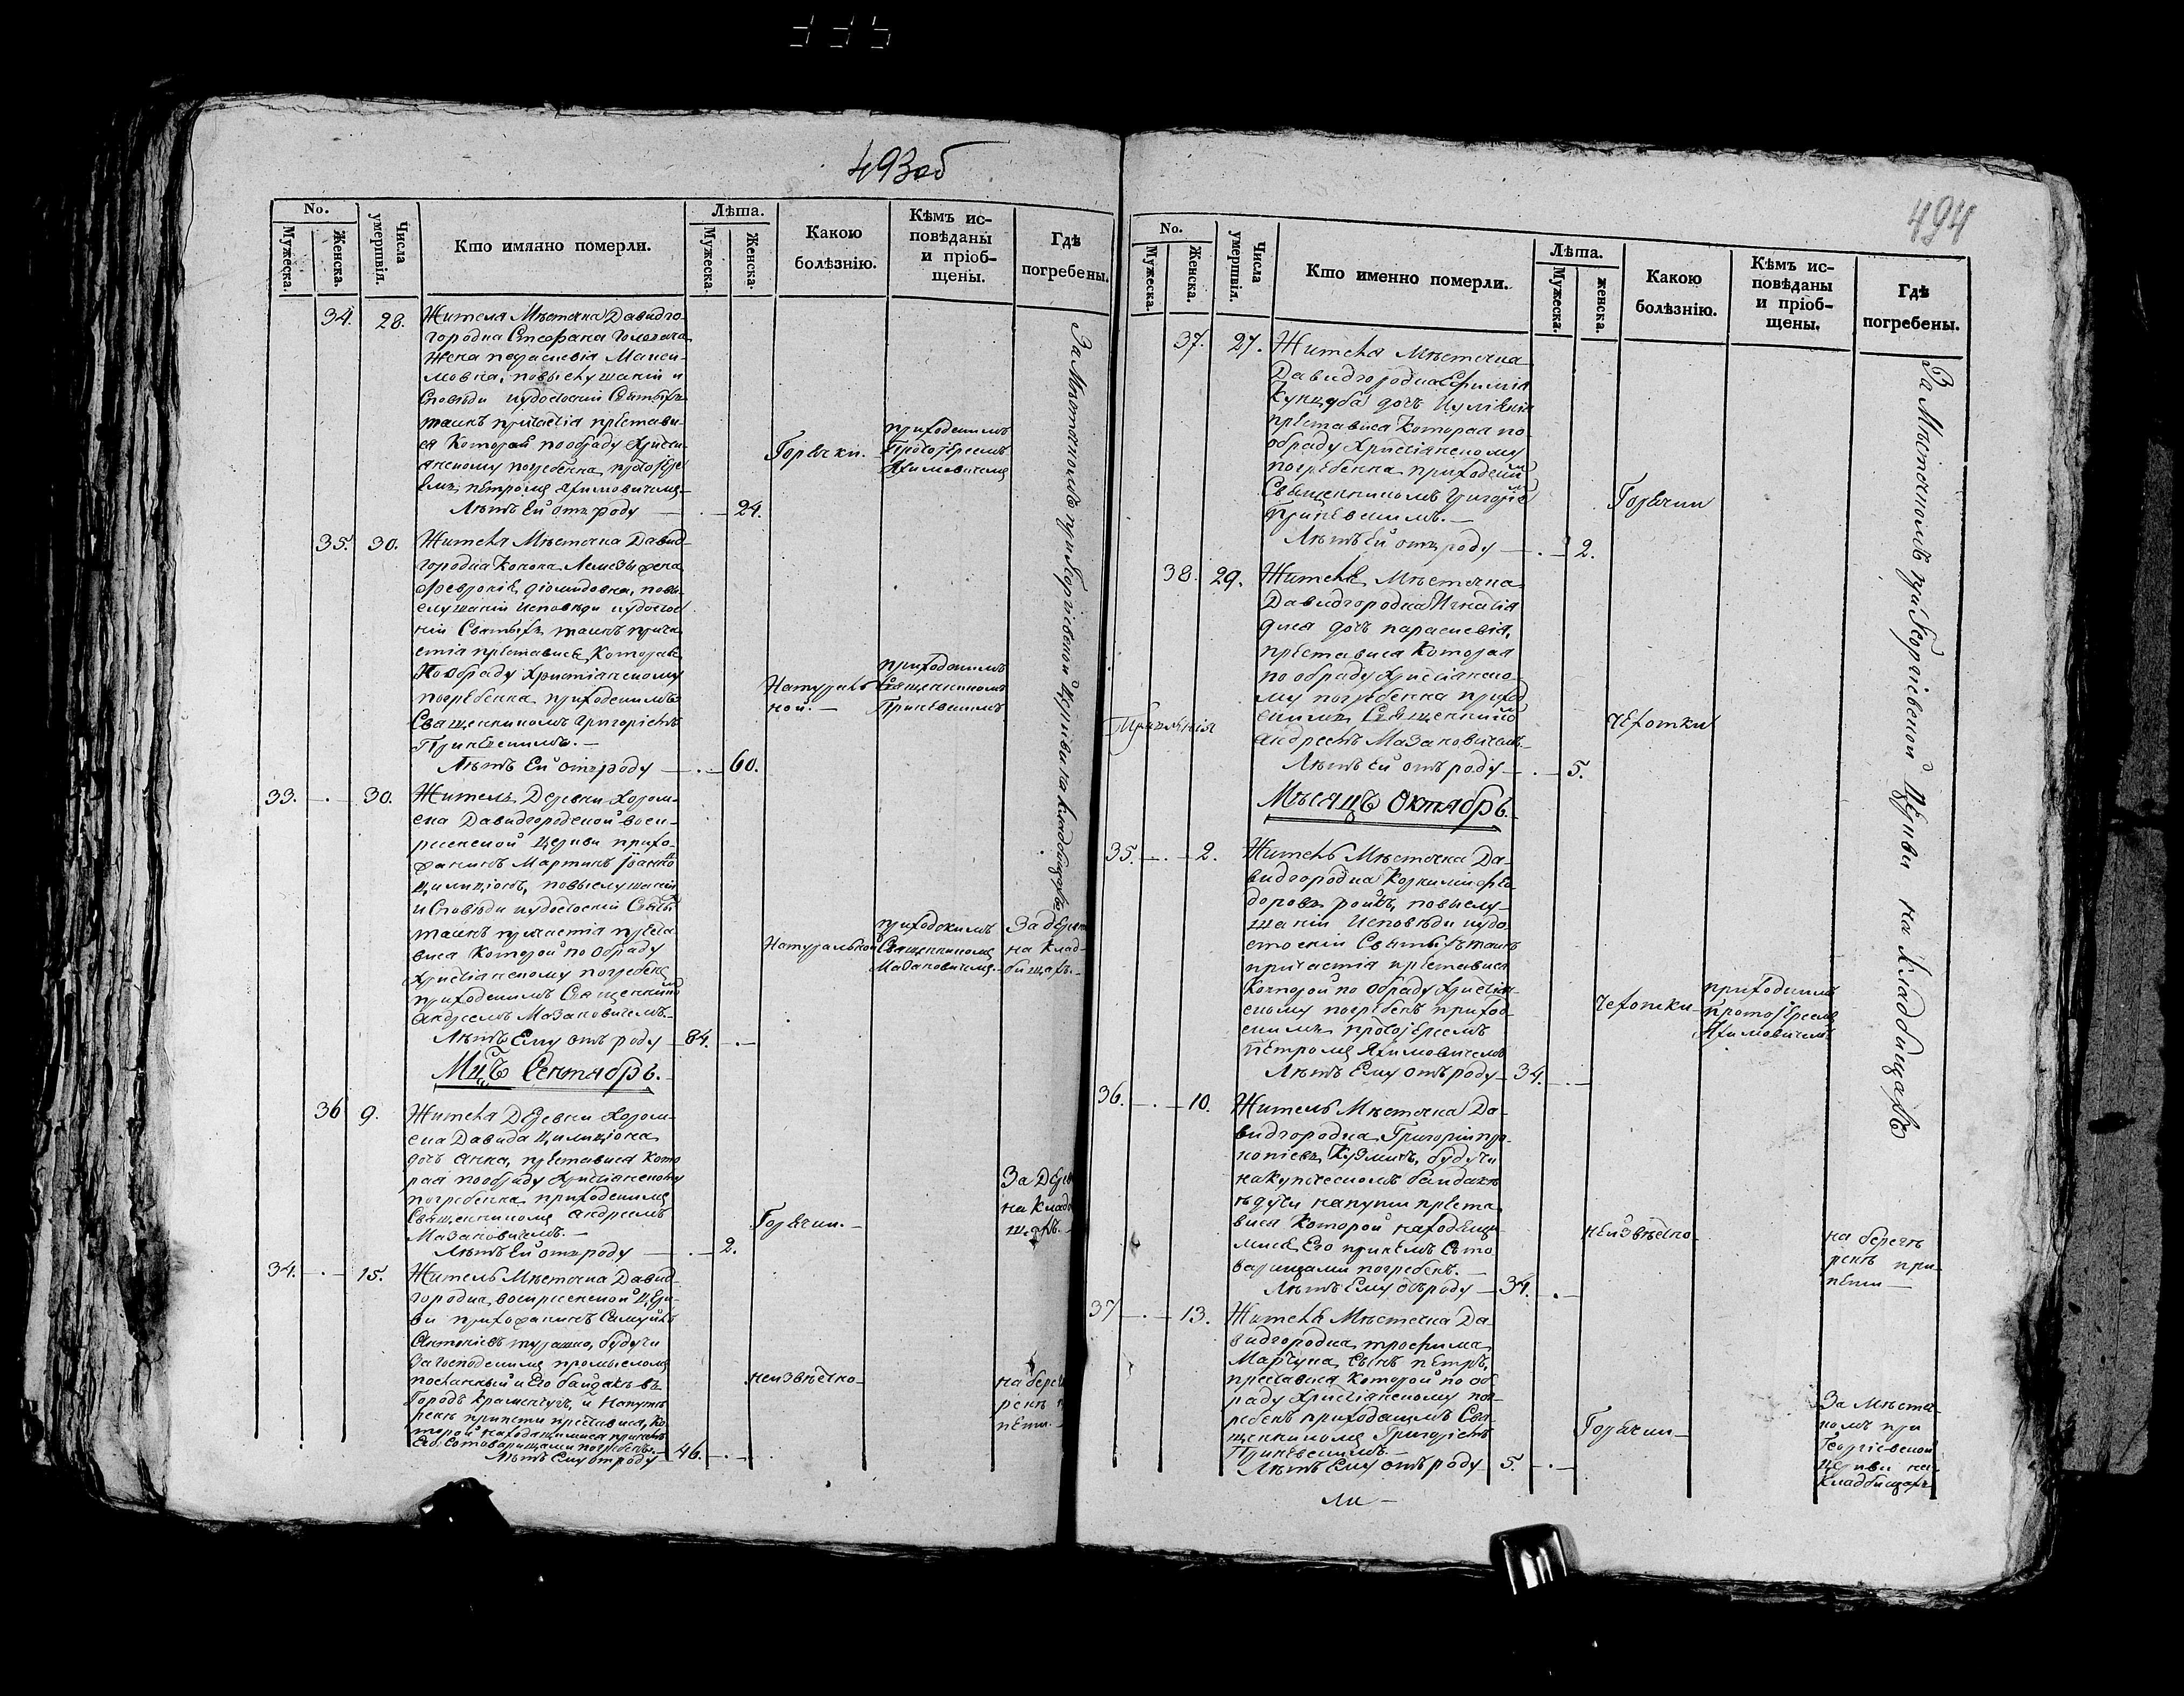 493об
No.
Мужеска.
Женска.
Числа умертвія.
Кто имянно померли.
Лѣта.
Мужеска.
Женска.
Какою болѣзнію.
Кѣмъ ис-
повѣданы
и пріоб-
щены.
Гдѣ
погребены.
34. 28.
Жителя Мѣстечка Давидго-
городка Стефана
жена параскевія
мовна, повыслушаніи и
споведи иудостоеніи Святыхъ
таинъ причастія престави-
ся Которая пообряду Христи-
анскому погребенна протоіере
емъ петромъ Яхимовичемъ
Лѣтъ Ей отъ роду — 24.
Горячки.
приходскимъ
Протоіереемъ
Яхимовичемъ
За Мѣстечкомъ при Георгіевской Церкви на Кладбищахъ
35. 30.
Жителя Мѣстечка Давид-
городка Конона жена
повы-
слушаніи исповѣди иудостое
ніи Святыхъ таинъ прича
стія преставися Которая
Пообряду Христіанскому
погребенна приходскимъ
Священникомъ Григоріемъ
Лѣтъ Ей отъ роду — 60.
Натураль
ной. —
приходскимъ
Священникомъ
33. 30.
Житель Деревни Хором-
ска Давидгородской воск-
рисенской Церкви прихо-
жанинъ Мартинъ
повыслушаніи
исповѣди иудостоеніи Святы
таинъ причастія преста
вися Которой по обряду
Христіанскому погребенъ
приходскимъ Священнико
андреемъ Мазановичемъ.
Лѣтъ Ему отъ роду — 84.
Натуральной
приходскимъ
Священникомъ
Мазановичемъ.
За дерев
на клад-
бищахъ.
Мцъ Сентябрь.
36 9.
Жителя Деревни Хором-
ска Давида
дочь анна, преставися кото
рая пообряду Христіанскому
погребенна приходскимъ
Священникомъ андреемъ
Мазановичемъ. —
Лѣтъ Ей отъ роду — 2.
Горячки. —
За Дерев
на Кладб
щахъ. —
34. 15.
Житель Мѣстечка Давид-
городка, воскрисенской Цер-
кви прихожанинъ
будучи
загосподскимъ промысломъ
посланный и Его байдакъ въ
Городъ Кременчугъ, и напути
реки припети преставися, ко
торой находящимися принемъ
Его сотоварищами погребенъ. —
Лѣтъ Ему отроду — 46.
неизвѣстно
на бере
реки п
пети. —
494
No.
Мужеска.
Женска.
Числа умертвія.
Кто именно померли.
Лѣта.
Мужеска.
женска.
Какою болѣзнію.
Кѣмъ ис-
повѣданы
и пріоб-
щены.
Гдѣ
погребены.
37. 27.
Жителя Мѣстечка
Давидгородка
дочь
преставися Которая по
обряду Христіанскому
погребенна приходским
Священникомъ Григоріе
Лѣтъ Ей отъ роду — 2.
Горячки
За Мѣстечкомъ при Георгіевской Церкви на Кладбищахъ
38. 29.
Жителя Мѣстечка
Давидгородка Игнатія
дочь параскевія,
преставися Которая
по обряду Христіанско-
му погребенна приход
скимъ Священнико
андреемъ Мазановичемъ
Лѣтъ Ей отъ роду — 5.
чехотки
Мѣсяцъ Октябрь.
35. 2.
Житель Мѣстечка Да-
видгородка Корнилій Фео
доровъ повыслу-
шаніи исповѣди иудо-
стоеніи Святыхъ таинъ
причастія преставися
Которой по обряду Христіан-
скому погребенъ приход-
скимъ протоіереемъ
Петромъ Яхимовичемъ
Лѣтъ Ему отъ роду — 34.
чехотки
приходскимъ
Протоіереемъ
Яхимовичемъ
36. 10.
Житель Мѣстечка Да-
видгородка, Григорій про-
копіевъ будучи
накупеческомъ байдакѣ
едучи напути преста
вися Которой находящи
мися Его принемъ Съто
варищами погребенъ. —
Лѣтъ Ему отъ роду — 34.
неизвѣстно
на берегѣ
рекѣ при-
пети —
37 13.
Жителя Мѣстечка Да-
видгородка, трофима
Марчука, Сынъ петръ,
преставися Которой по об
ряду Христіанскому пог-
ребенъ приходскимъ Свя-
щенникомъ Григоріемъ
Лѣтъ Ему отъ роду 5.
Горячки —
За Мѣсте
комъ при
Георгіевской
Церкви на
Кладбищахъ